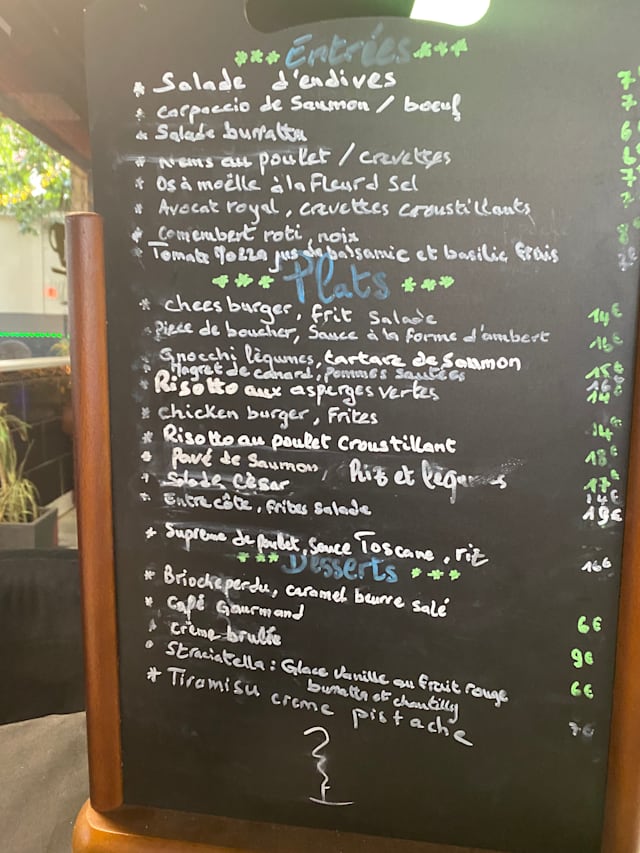 *** Entrées ***
* Salade d'endives 7
* carpaccio de Saumon / boeuf 7
* Salade burratta 6
* Nems au poulet / crevettes 6
* Os à moëlle à la Fleur d Sel 7
* Avocat royal, crevettes croustillants
* Camembert roti noix
* Tomate Mozza jus de balsamic et basilic frais
*** Plats ***
* cheesburger, frit Salade 14€
* Pièce de boucher, Sauce à la forme d'ambert 16€
Gnocchi légumes, tartare de Saumon 15€
* Magret de canard, pommes sautées 16€
* Risotto aux asperges vertes 14€
* Chicken burger, Frites 14€
* Risotto au poulet croustillant 18€
* Pavé de Saumon / Riz et légumes 17€
* Salade César 14€
* Entrecôte, frites salade 19€
* Supreme de poulet, Sauce Toscane, riz 16€
*** Desserts ***
* Brioche perdu, caramel beurre salé 6€
* Café Gourmand 9€
* crème brulée 6€
* Straciatella : Glace vanille au fruit rouge
burratta et chantilly
* Tiramisu creme pistache 7€